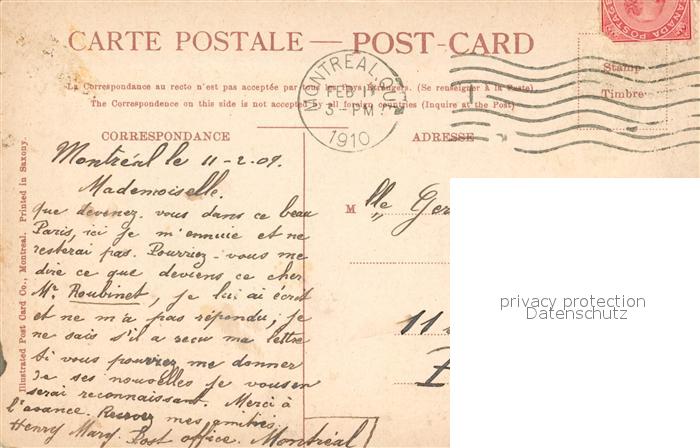 CARTE POSTALE — POST-CARD
CANADA POSTAGE
La Correspondance au recto n'est pas acceptée par tous les Pays Etrangers. (Se renseigner à la Poste).
The Correspondence on this side is not accepted by all foreign countries (Inquire at the Post)
Stamp
Timbre
MONTREAL.QUE
FEB 11
3-PM
1910
CORRESPONDANCE
ADRESSE
Montréal le 11-2.09.
Mademoiselle.
que devenez-vous dans ce beau
Paris, ici je m'ennuie et ne
resterai pas. Pourriez-vous me
dire ce que deviens ce cher
Mr Roubinet, je lui ai écrit
et ne m'a pas répondu; je
ne sais s'il a reçu ma lettre
Si vous pourriez me donner
de ses nouvelles je vous en
serai reconnaissant. Merci à
l'avance. Recevez mes amitiés.
Henry Mary. Post office. Montréal
Mlle Ger
11
privacy protection
Datenschutz
Illustrated Post Card Co., Montreal. Printed in Saxony.